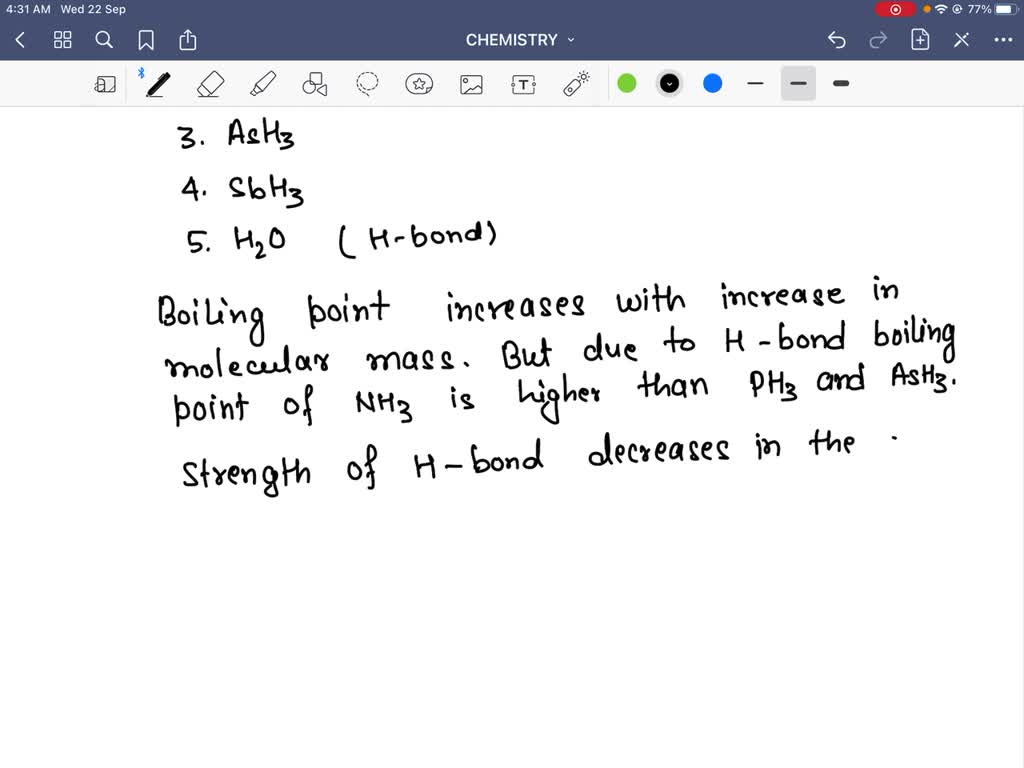 4:31 AM Wed 22 Sep
77%
CHEMISTRY
T
3. AsH3
4. SbH3
5. H2O (H-bond)
Boiling point increases with increase in
molecular mass. But due to H-bond boiling
point of NH3 is higher than PH3 and AsH3.
Strength of H-bond decreases in the